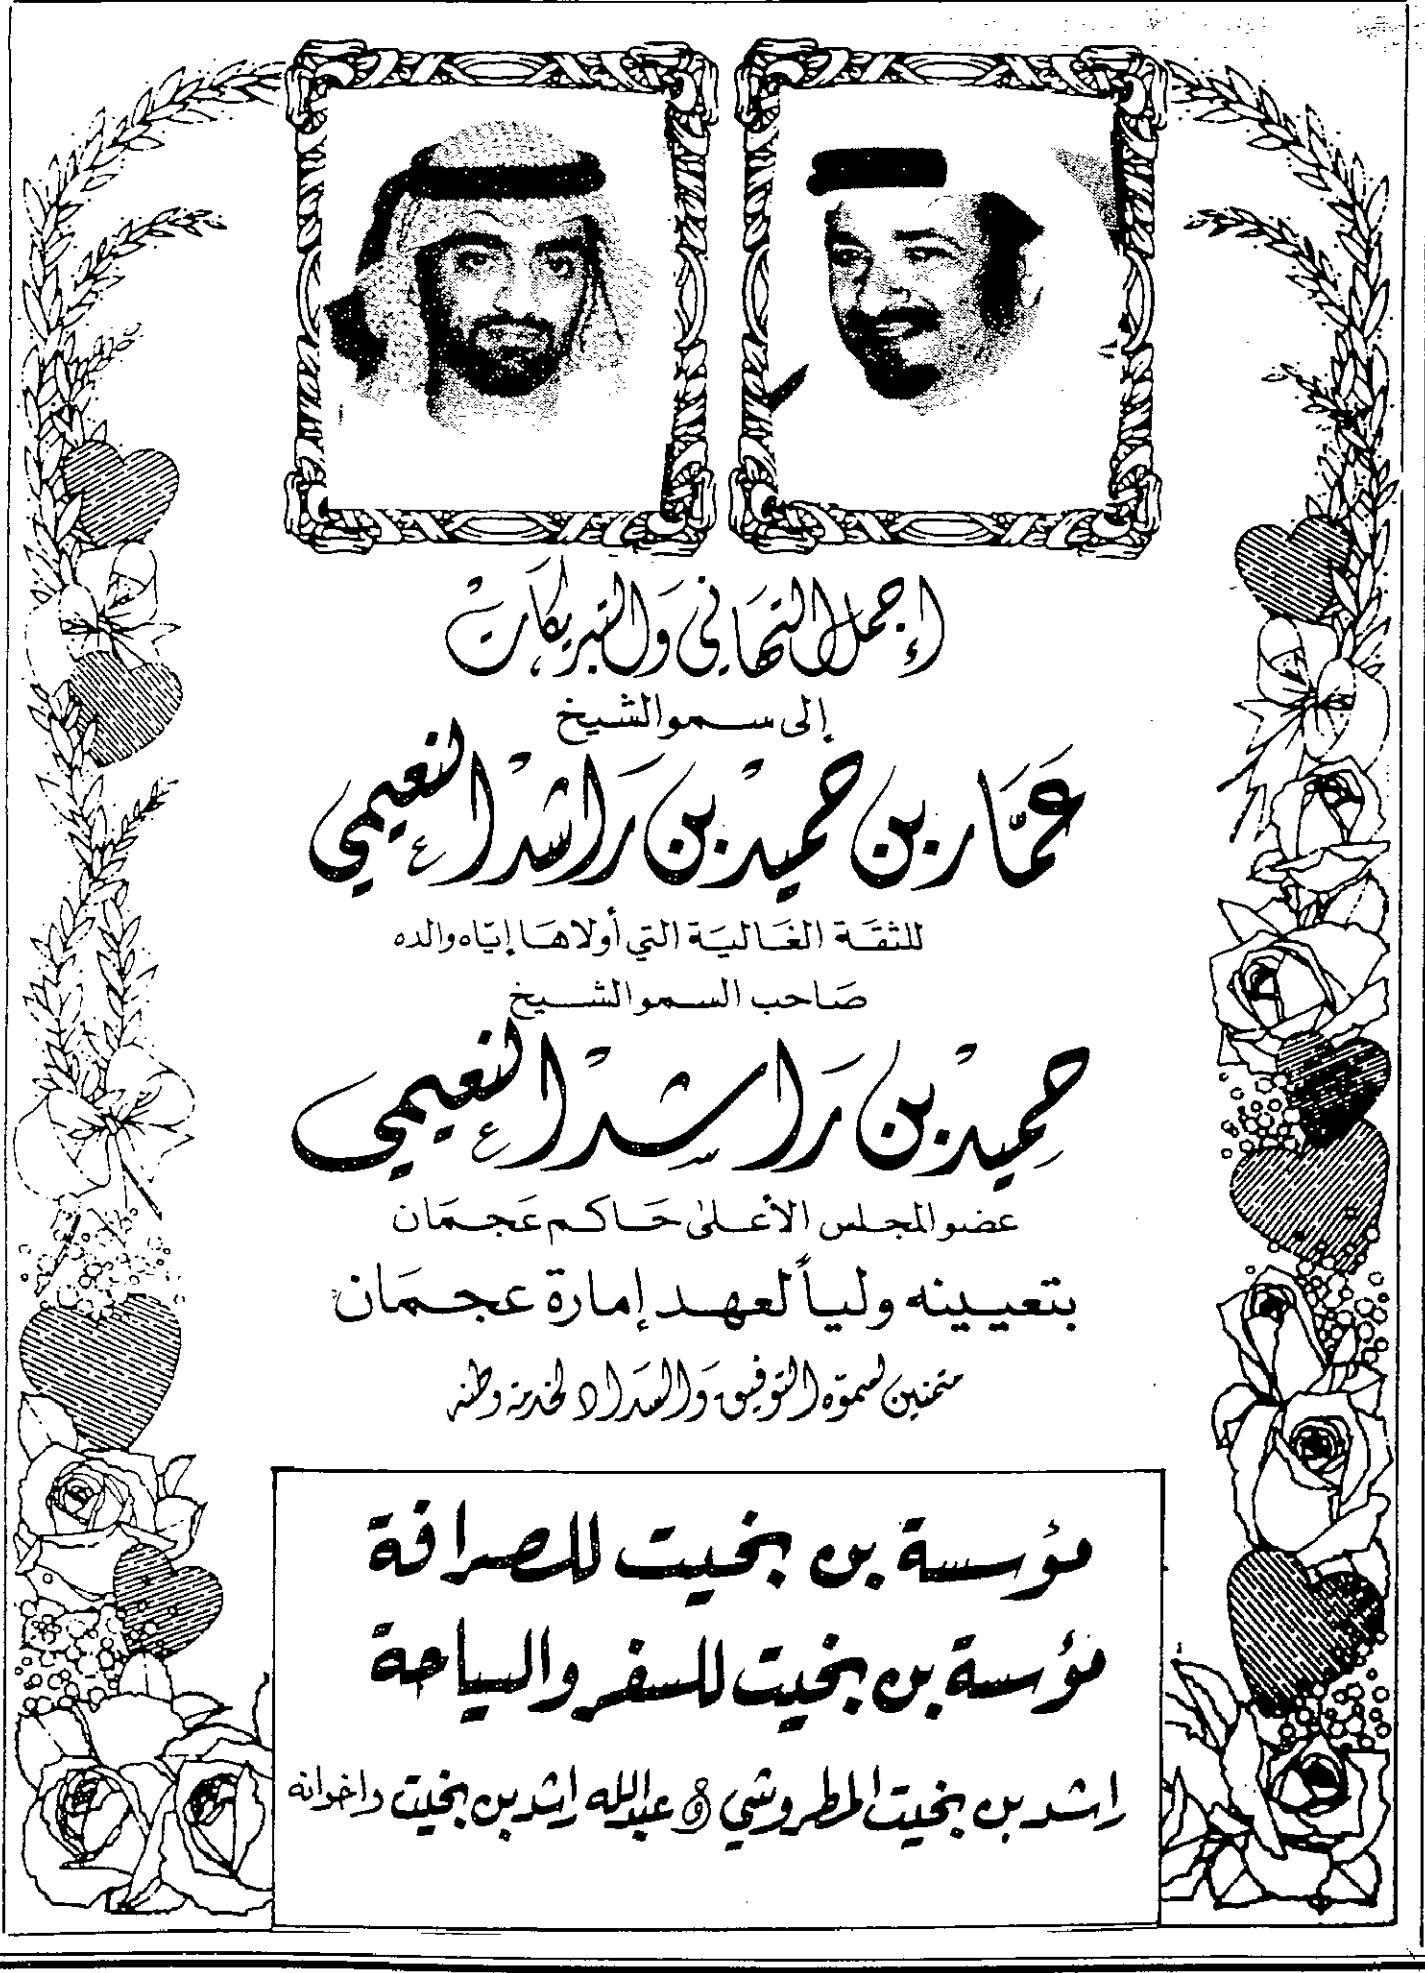 إجمل التهاني والتبريكات
إلى سمو الشيخ
عمّار بن حميد بن راشد النعيمي
للثقة الغالية التي أولاها إيّاه والده
صاحب السمو الشيخ
حميد بن راشد النعيمي
عضو المجلس الأعلى حاكم عجمان
بتعيينه ولياً لعهد إمارة عجمان
متمنين لسموّه التوفيق والسداد لخدمة وطنه
مؤسسة بن بخيت للصرافة
مؤسسة بن بخيت للسفر والسياحة
راشد بن بخيت المطروشي و عبدالله راشد بن بخيت واخوانه